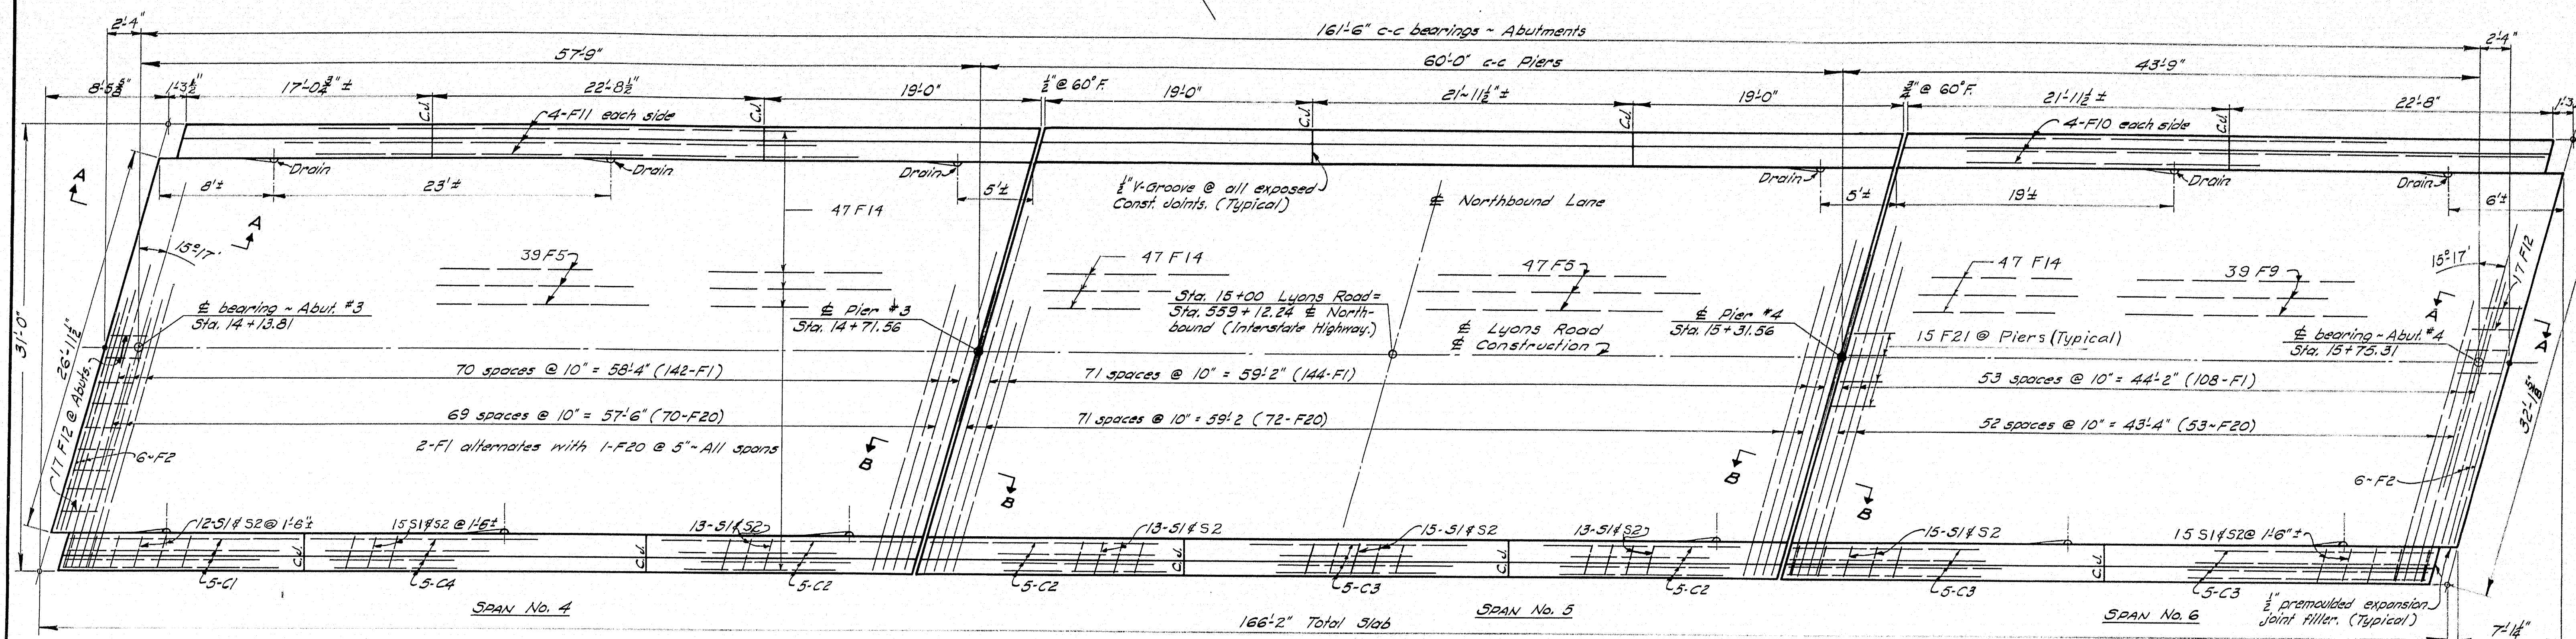 2'-4"
161'-6" c-c bearings ~ Abutments
2'-4"
57'-9"
60'-0" c-c Piers
43'-9"
8'-5 5/8"
1'-3 1/2"
17'-0 3/4" ±
22'-8 1/2"
19'-0"
1/2" @ 60° F.
19'-0"
21'-11 1/2" ±
19'-0"
3/4" @ 60° F.
21'-11 1/2 ±
22'-8"
1'-3
C.J.
C.J.
C.J.
C.J.
C.J.
4-F11 each side
4-F10 each side
Drain
Drain
Drain
Drain
Drain
Drain
8'±
23'±
5'±
1/2" V-Groove @ all exposed
Const. Joints. (Typical)
℄ Northbound Lane
5'±
19'±
6'±
A
A
15°-17'
47 F14
39 F5
47 F14
47 F5
47 F14
39 F9
15°-17'
17 F12
A
A
℄ bearing ~ Abut. #3
Sta. 14+13.81
℄ Pier #3
Sta. 14+71.56
Sta. 15+00 Lyons Road =
Sta. 559+12.24 ℄ North-
bound (Interstate Highway.)
℄ Lyons Road
℄ Construction
℄ Pier #4
Sta. 15+31.56
15 F21 @ Piers (Typical)
℄ bearing ~ Abut. #4
Sta. 15+75.31
31'-0"
26'-11 1/2"
17 F12 @ Abuts.)
32'-1 5/8"
70 spaces @ 10" = 58'-4" (142-F1)
71 spaces @ 10" = 59'-2" (144-F1)
53 spaces @ 10" = 44'-2" (108-F1)
69 spaces @ 10" = 57'-6" (70-F20)
71 spaces @ 10" = 59'-2 (72-F20)
52 spaces @ 10" = 43'-4" (53~F20)
2-F1 alternates with 1-F20 @ 5" ~ All spans
6~F2
B
B
B
B
6~F2
12-S1 & S2 @ 1'-6"±
15 S1 & S2 @ 1'-6"±
13-S1 & S2
13-S1 & S2
15-S1 & S2
13-S1 & S2
15-S1 & S2
15 S1 & S2 @ 1'-6"±
C.J.
C.J.
C.J.
C.J.
C.J.
5-C1
5-C4
5-C2
5-C2
5-C3
5-C2
5-C3
5-C3
SPAN No. 4
SPAN No. 5
SPAN No. 6
1/2" premoulded expansion
joint filler. (Typical)
166'-2" Total Slab
7'-1 1/4"